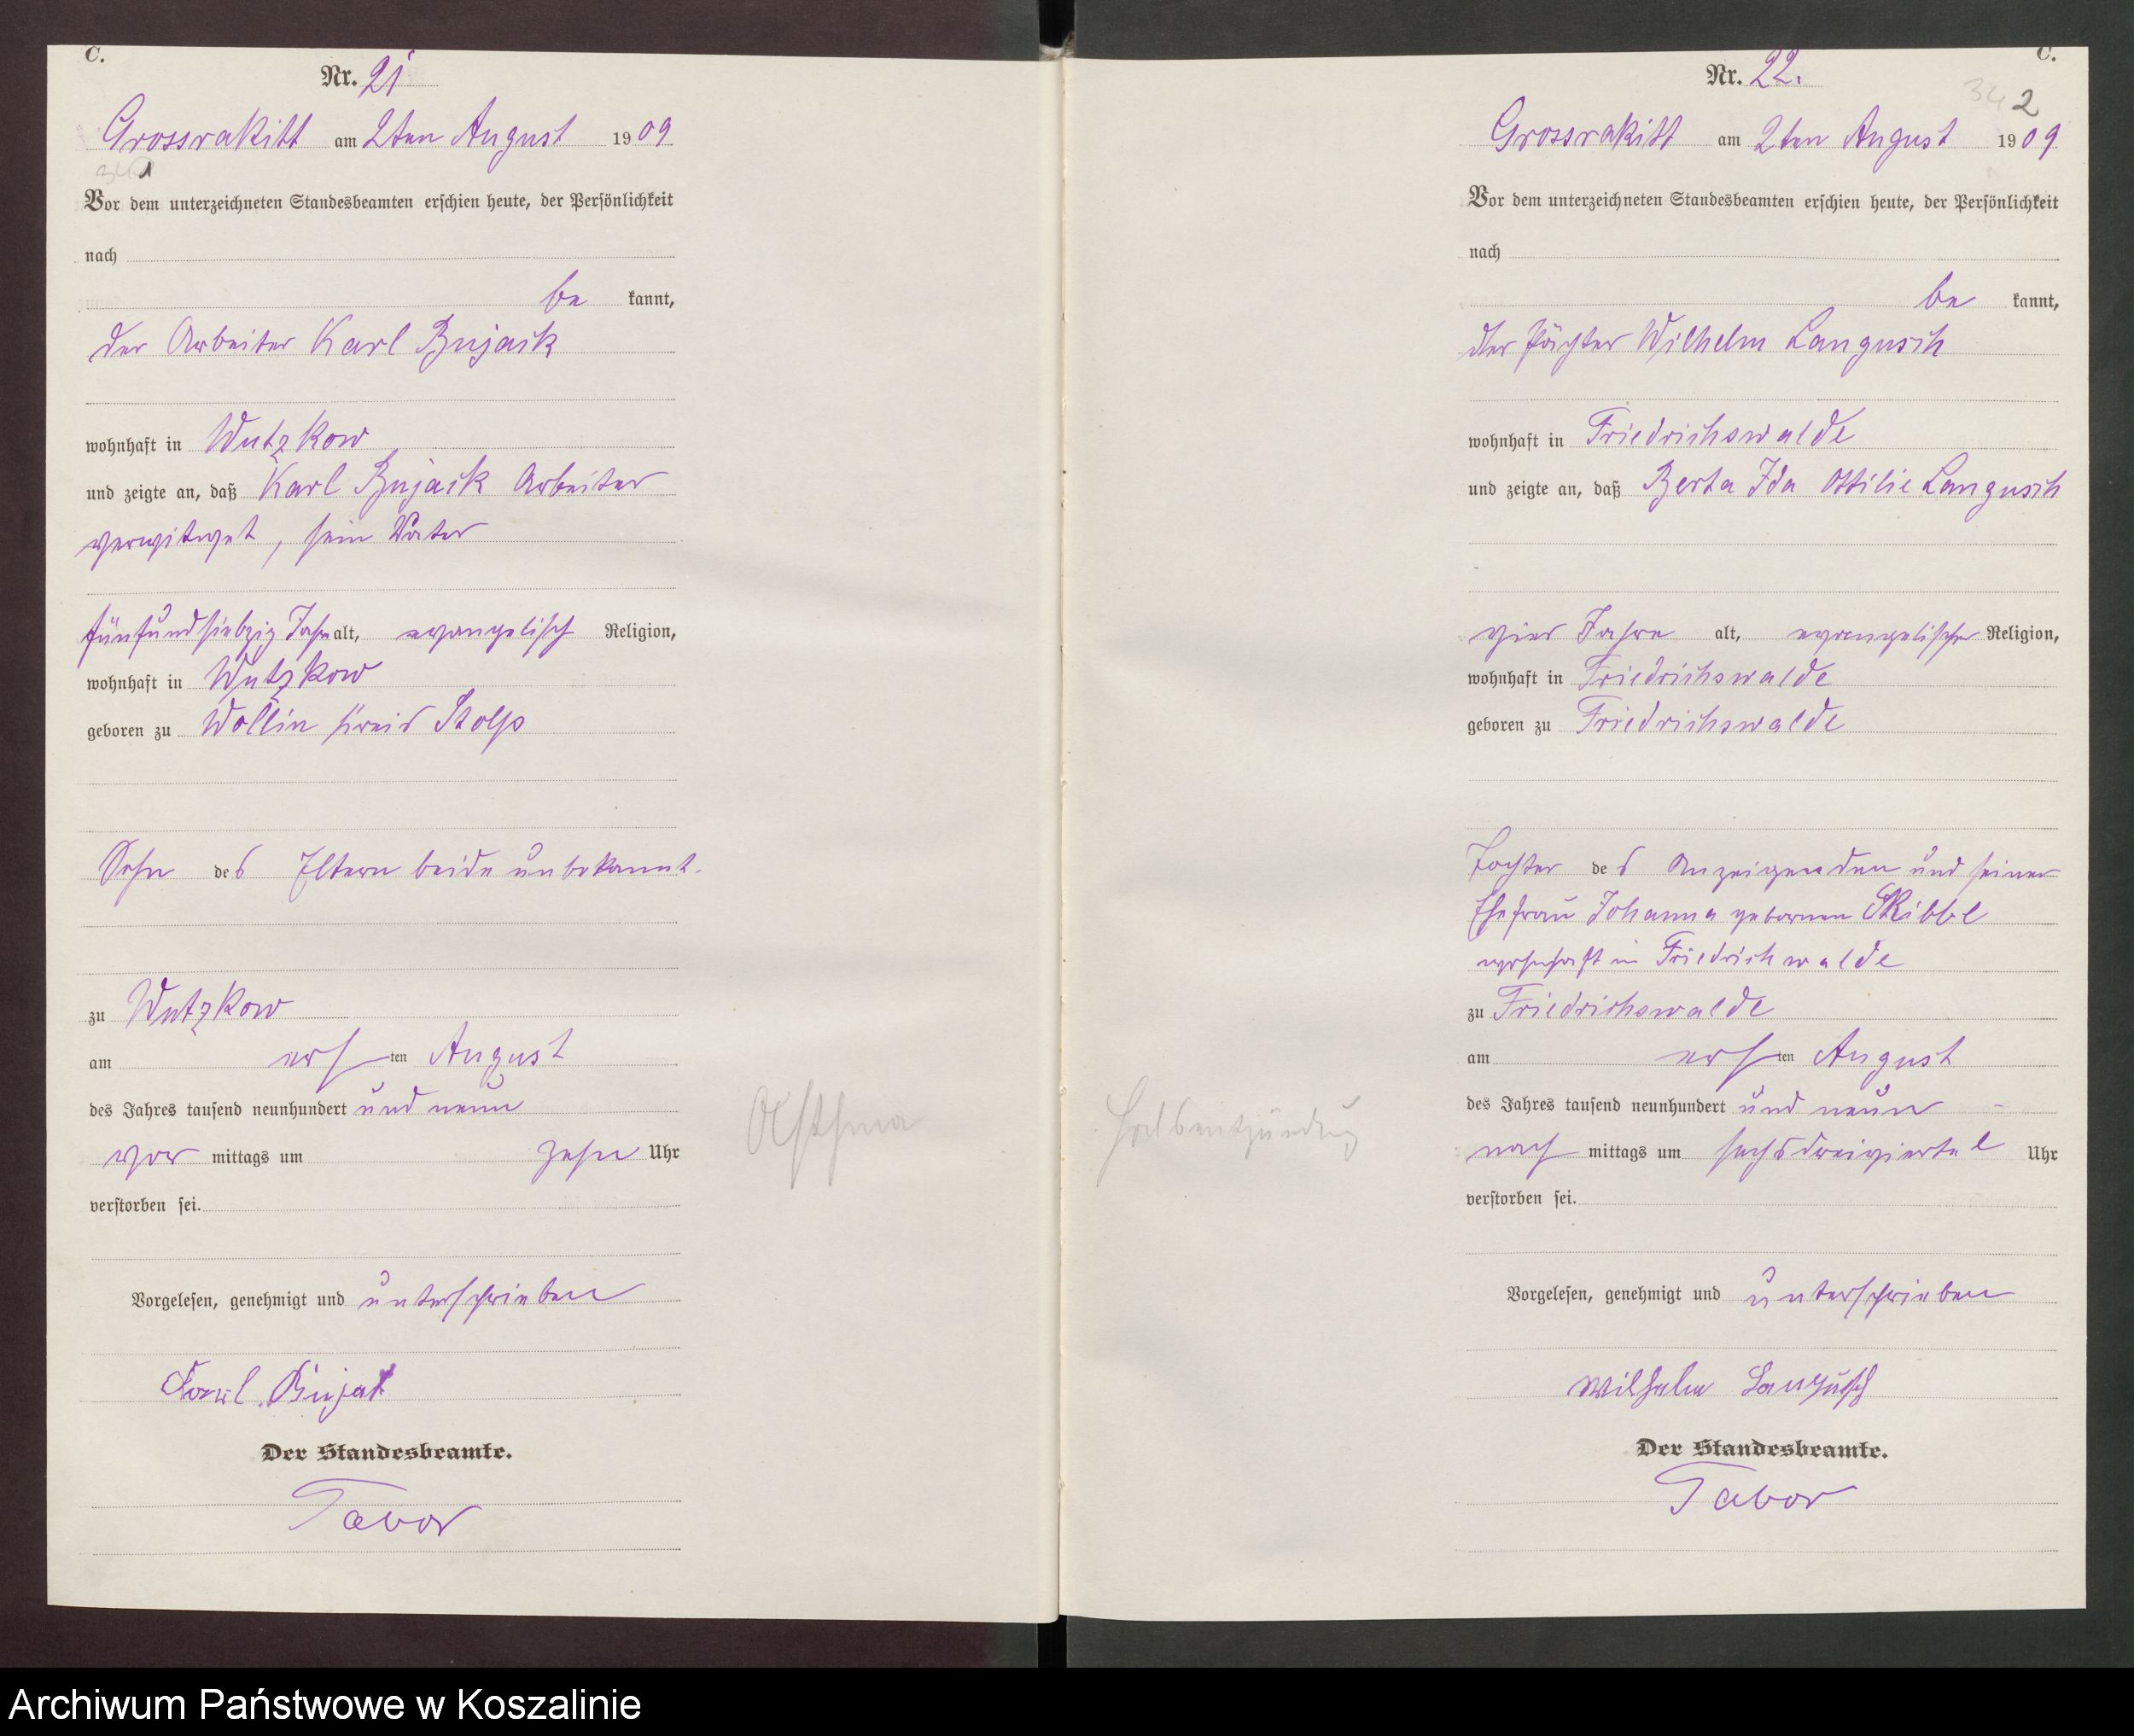 C.
Nr. 21
Grossrakitt am 2ten August 1909
Vor dem unterzeichneten Standesbeamten erschien heute, der Persönlichkeit
nach
be kannt,
der Arbeiter Karl Bujack
wohnhaft in Wutzkow
und zeigte an, daß Karl Bujack Arbeiter
verwitwet, sein Vater
fünfundsiebzig Jahre alt, evangelisch Religion,
wohnhaft in Wutzkow
geboren zu Wollin Kreis Stolp
Sohn des Eltern beide unbekannt.
zu Wutzkow
am ersten August
des Jahres tausend neunhundert und neun
vor mittags um zehn Uhr
verstorben sei.
Vorgelesen, genehmigt und unterschrieben
Karl Bujak
Der Standesbeamte.
Tabor
Asthma
C.
Nr. 22.
342
Grossrakitt am 2ten August 1909
Vor dem unterzeichneten Standesbeamten erschien heute, der Persönlichkeit
nach
be kannt,
der Pächter Wilhelm Langusch
wohnhaft in Friedrichswalde
und zeigte an, daß Berta Ida Ottilie Langusch
vier Jahre alt, evangelischer Religion,
wohnhaft in Friedrichswalde
geboren zu Friedrichswalde
Tochter des Anzeigenden und seiner
Ehefrau Johanna gebornen Skibbe
wohnhaft in Friedrichwalde
zu Friedrichswalde
am ersten August
des Jahres tausend neunhundert und neun
nach mittags um sechsdreiviertel Uhr
verstorben sei.
Vorgelesen, genehmigt und unterschrieben
Wilhelm Langusch
Der Standesbeamte.
Tabor
Halsentzündung
Archiwum Państwowe w Koszalinie